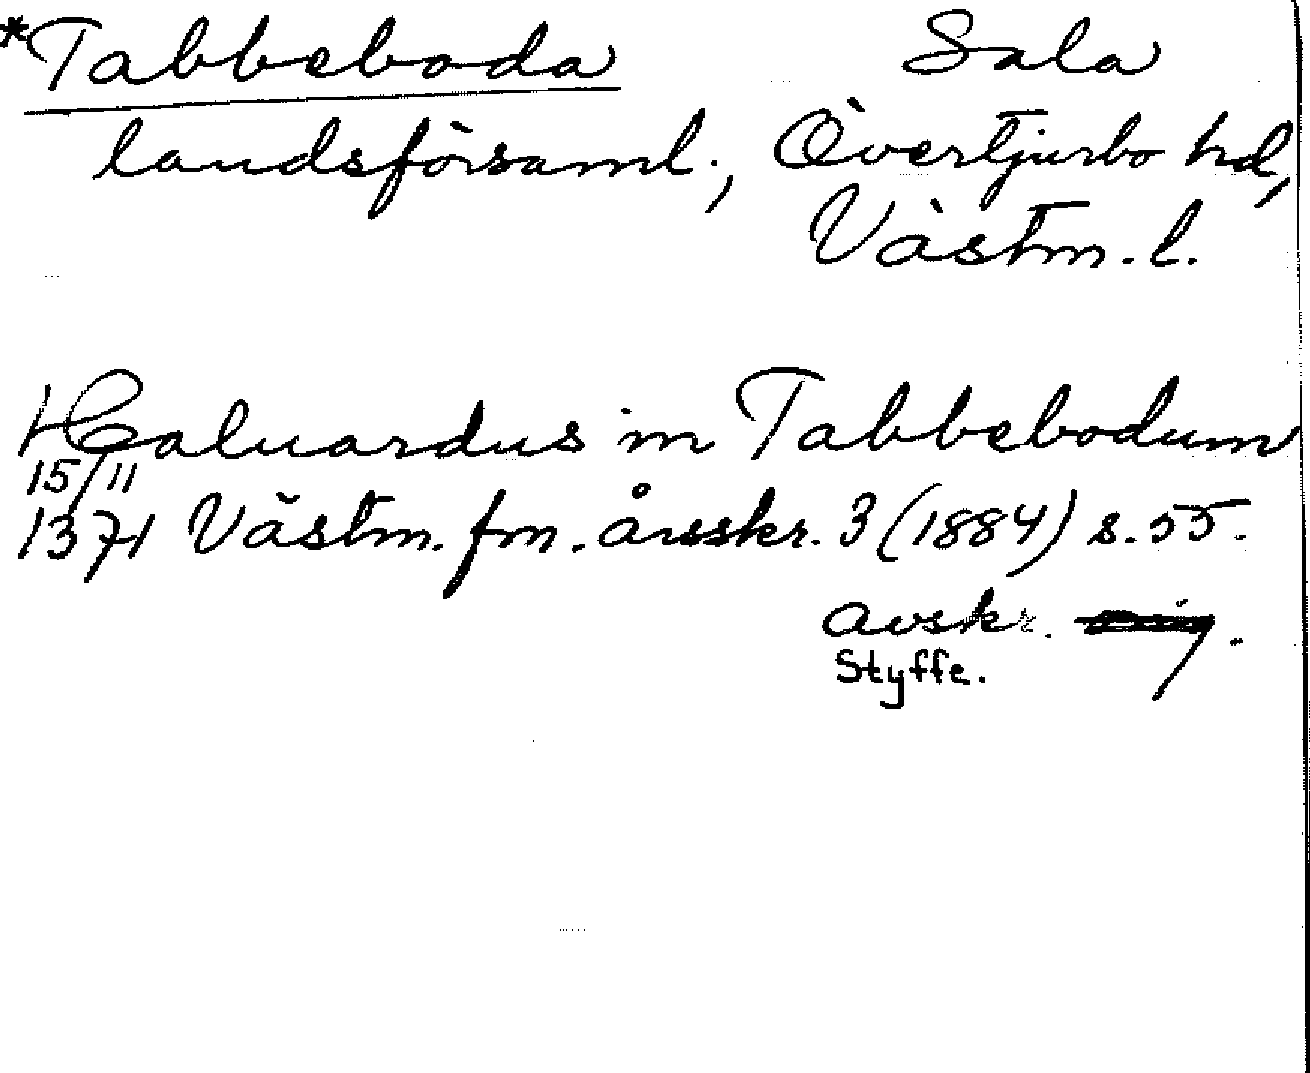 *Tabbeboda Sala
landsförsaml., Övertjurbo hd,
Västm. l.
Haluardus in Tabbebodum
15/11
1371 Västm. fm. årsskr. 3 (1884) s. 55.
avskr.
Styffe.